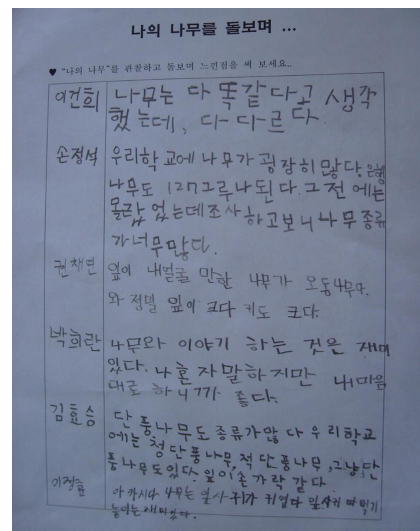 나의 나무를 돌보며 ...
♥ "나의 나무"를 관찰하고 돌보며 느낀점을 써 보세요..
이건희 나무는 다 똑같다고 생각
했는데, 다 다르다.
손정석 우리학교에 나무가 굉장히 많다. 은행
나무도 127그루나된다. 그전에는
몰랐었는데조사하고보니나무종류
가너무많다.
권채연 잎이 내얼굴 만한 나무가 오동나무다.
와 정말 잎이 크다 키도 크다.
박희란 나무와 이야기 하는 것은 재미
있다. 나혼자말하지만 내마음
대로 하니까 좋다.
김효승 단풍나무도종류가많다 우리학교
에는 청단풍나무, 적단풍나무, 그냥단
풍나무도있다. 잎이손가락 같다.
아카시아 나무는 잎사귀가 귀엽다 잎사귀 따먹기
놀이는재미있다.